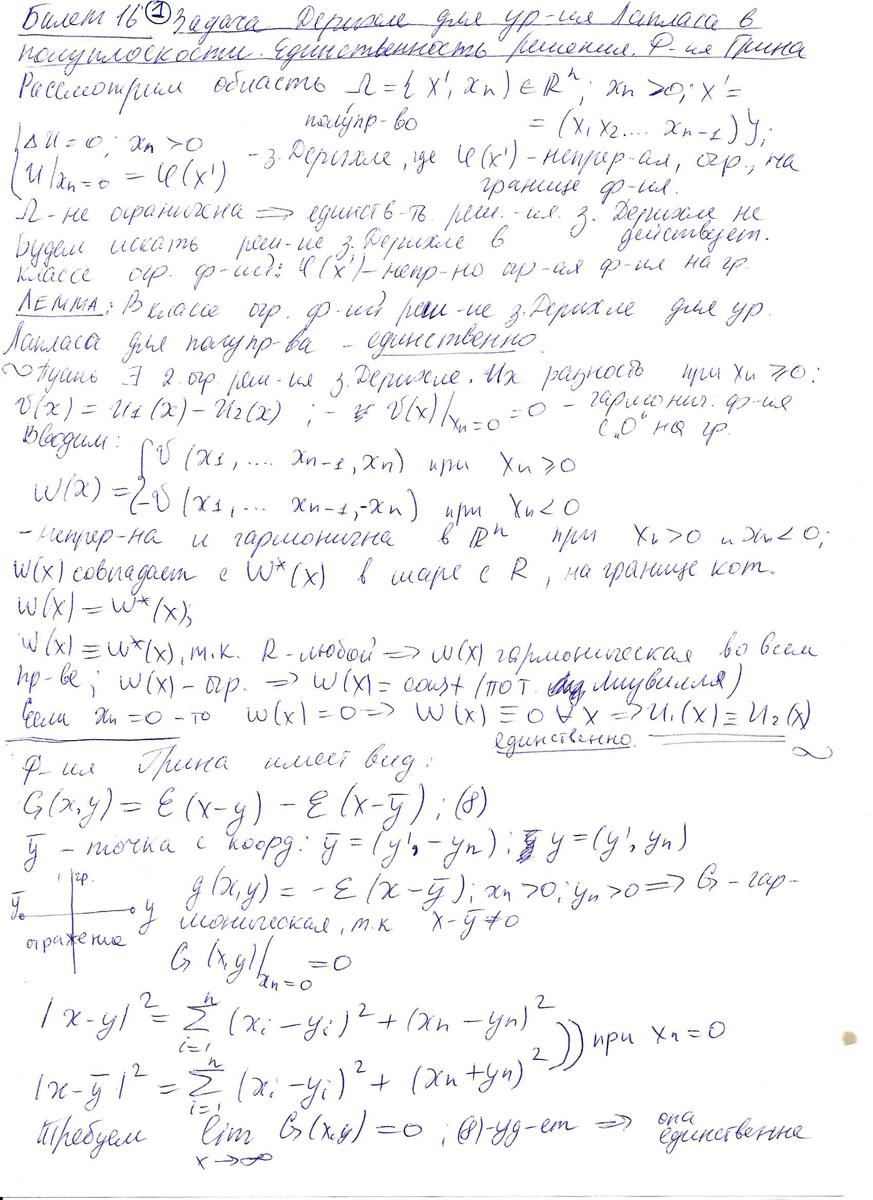 Билет 16 ① Задача Дерихле для ур-ия Лапласа в
полуплоскости. Единственность решения. Ф-ия Грина
Рассмотрим область Ω = { x', xn) ∈ ℝⁿ; xn > 0; x' =
полупр-во = (x1 x2 .... xn-1) };
{ Δu = 0; xn > 0
{ u|xn=0 = φ(x') - з. Дерихле, где φ(x') - непрер-ая, огр., на
границе ф-ия.
Ω - не ограничена ⇒ единств-ть реш.-ия. з. Дерихле не
действует.
Будем искать реш-ие з. Дерихле в
классе огр. ф-ий: φ(x') - непр-но огр-ая ф-ия на гр.
ЛЕММА: В классе огр. ф-ий реш-ие з. Дерихле для ур.
Лапласа для полупр-ва - единственно.
~ Пусть ∃ 2 огр. реш-ия з. Дерихле. Их разность при xn ≥ 0:
v(x) = u1(x) - u2(x) ; - v(x)|xn=0 = 0 - гармонич. ф-ия
с "0" на гр.
Вводим:
w(x) = { v (x1, .... xn-1, xn) при xn ≥ 0
{ -v (x1, ... xn-1, -xn) при xn < 0
- непрер-на и гармонична в ℝⁿ при xn > 0 и xn < 0;
w(x) совпадает с w*(x) в шаре с R, на границе кот.
w(x) = w*(x);
w(x) ≡ w*(x), т.к. R - любой ⇒ w(x) гармоническая во всем
пр-ве; w(x) - огр. ⇒ w(x) = const (по т. Лиувилля)
Если xn = 0 - то w(x) = 0 ⇒ w(x) ≡ 0 ∀ x ⇒ u1(x) ≡ u2(x)
единственно. ~
Ф-ия Грина имеет вид:
G(x,y) = Ɛ(x-y) - Ɛ(x-ȳ) ; (8)
ȳ - точка с коорд: ȳ = (y', -yn) ; y = (y', yn)
гр.
ȳ y
отражение
g(x,y) = - Ɛ(x-ȳ); xn > 0; yn > 0 ⇒ G - гар-
моническая, т.к x-ȳ ≠ 0
G(x,y)|xn=0 = 0
|x-y|² = Σ i=1 n (xi - yi)² + (xn - yn)²
)) при xn = 0
|x-ȳ|² = Σ i=1 n (xi - yi)² + (xn + yn)²
Требуем lim x→∞ G(x,y) = 0 ; (8)-уд-ет ⇒ она
единственна